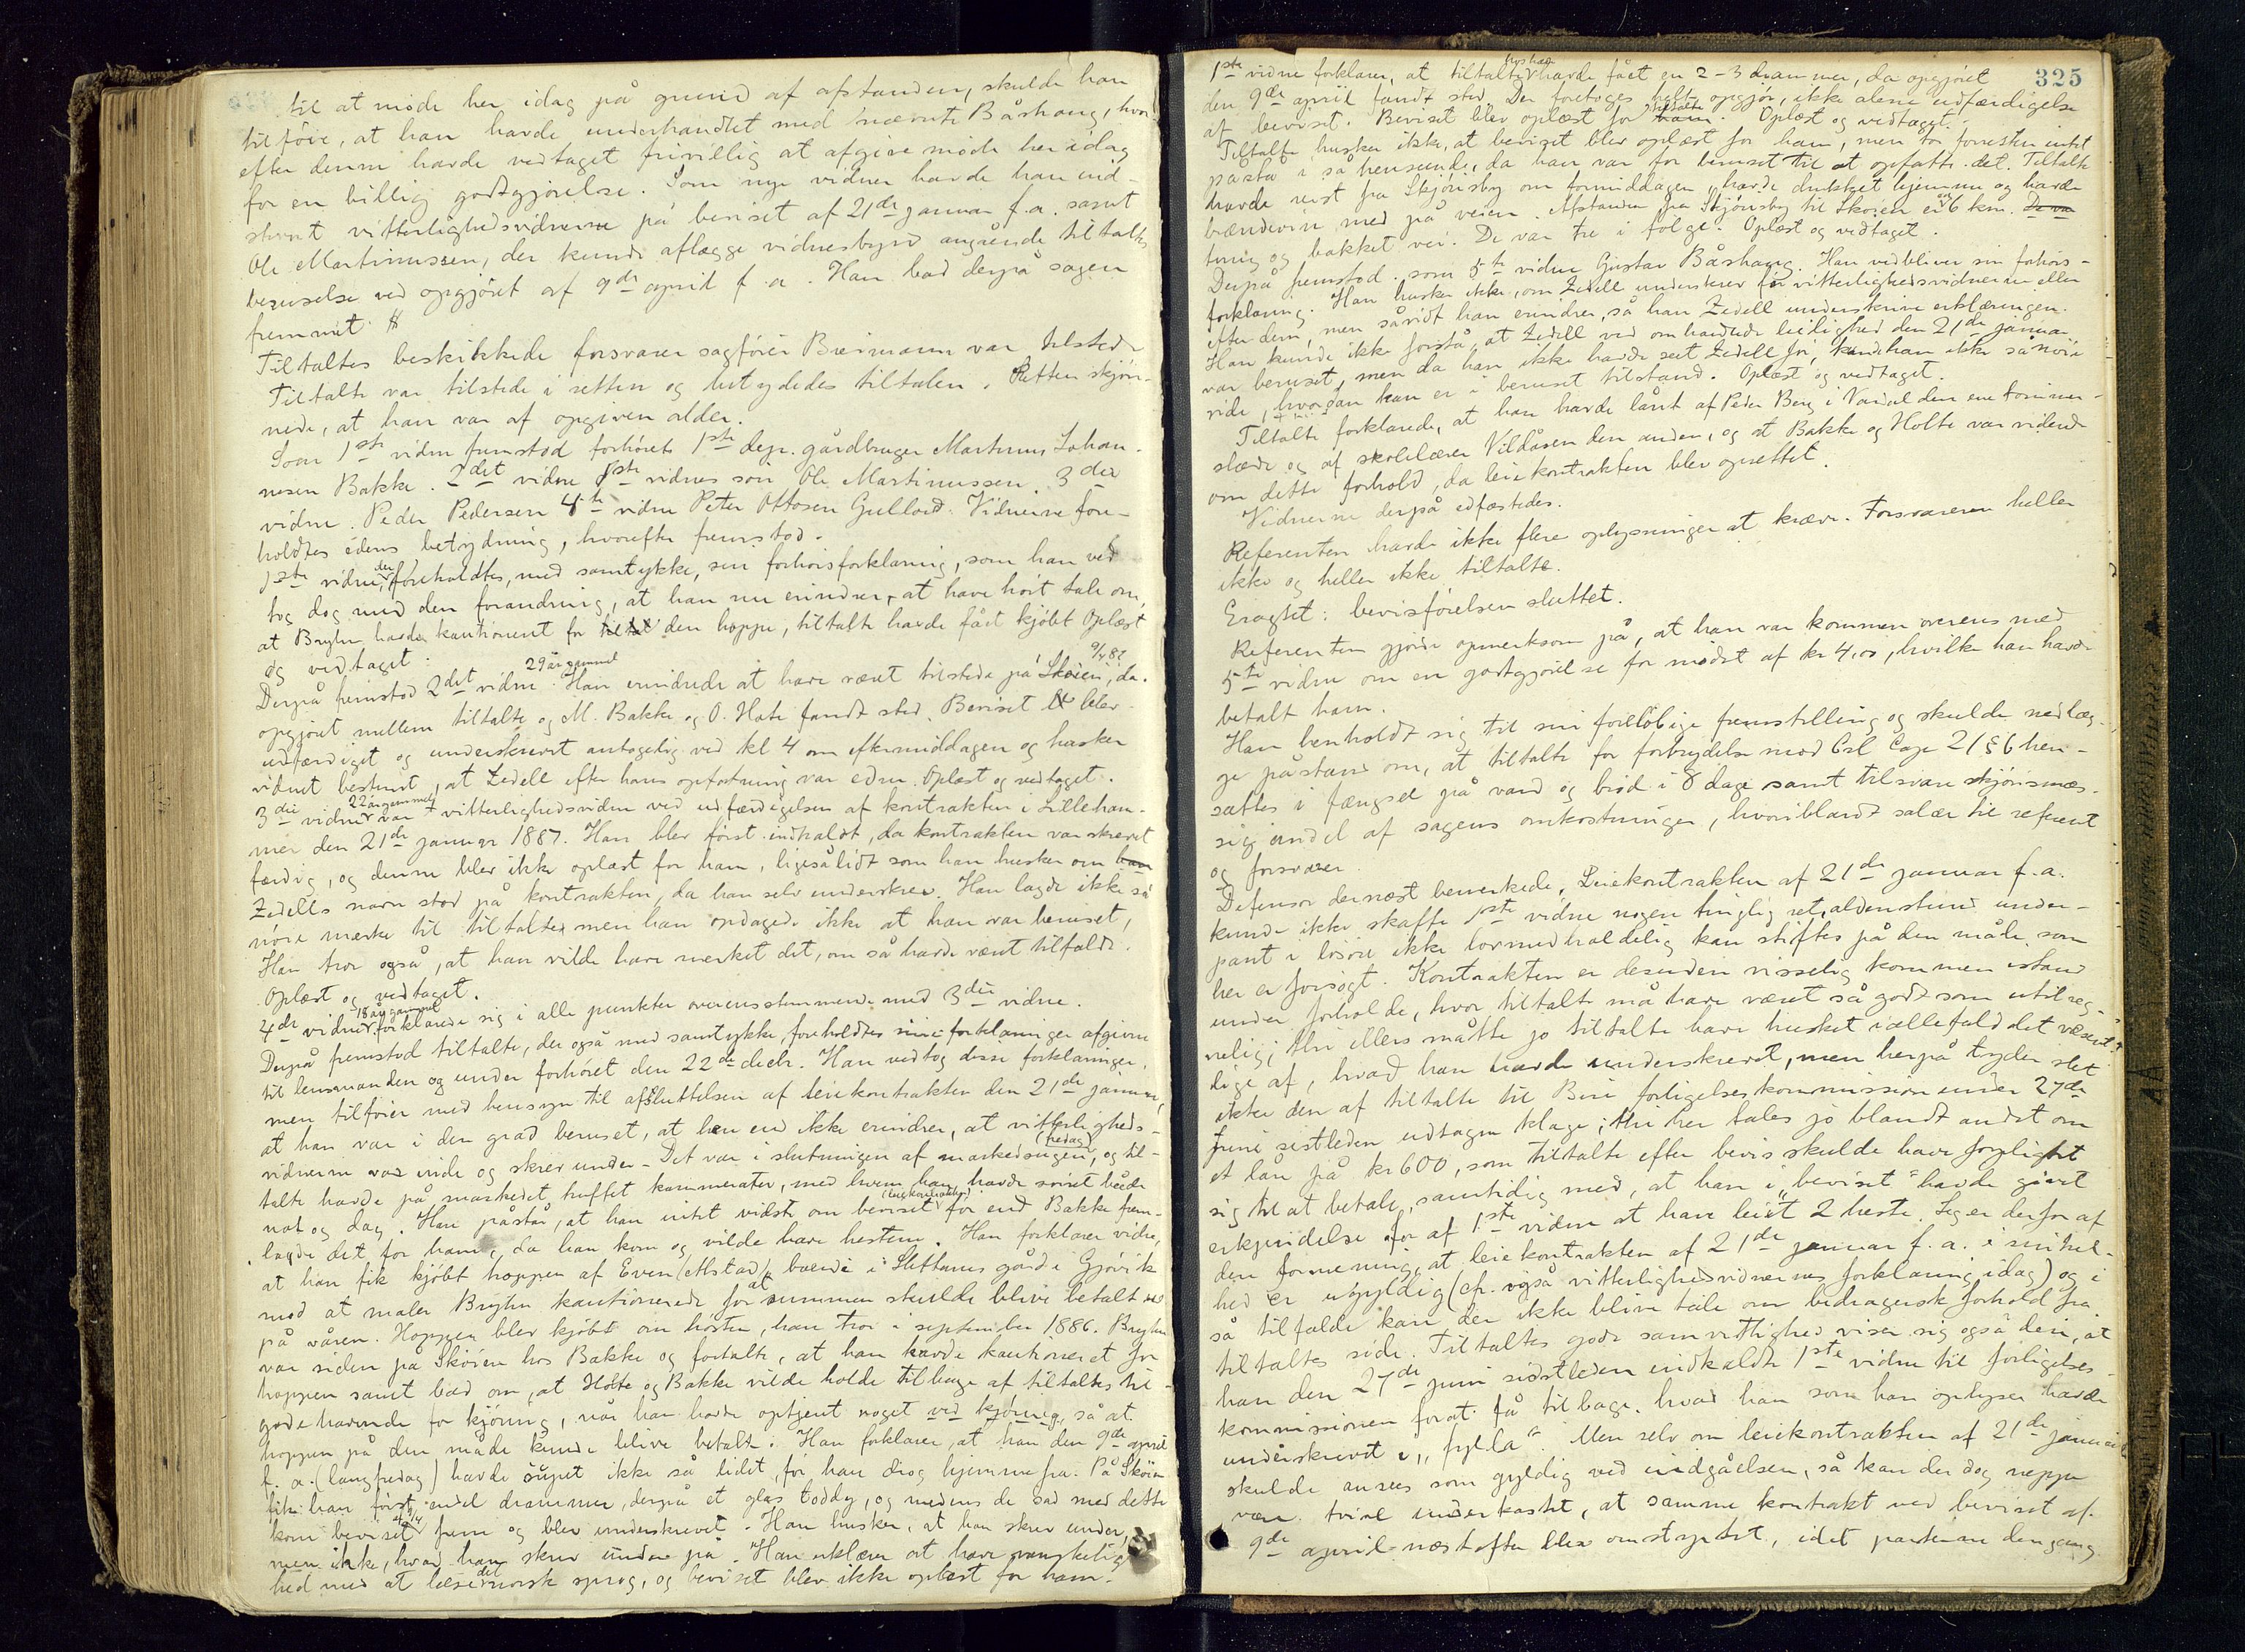 til at møde her idag på grund af afstanden, skulde han
tilføie, at han havde underhandlet med nævnte Båshaug, hvor-
efter denne havde vedtaget frivillig at afgive møde her idag
for en billig godtgjørelse. Som nye vidner havde han ind-
stevnt vitterlighedsvidnerne på beviset af 21de januar f.a. samt
Ole Martinussen, der kunde aflægge vidnesbyrd angående tiltaltes
beruselse ved opgjøret af 9de april f.a. Han bad derpå sagen
fremmet.
Tiltaltes beskikkede forsvarer sagfører Biermann var tilstede
Tiltalte var tilstede i retten og betydedes tiltalen. Retten skjøn-
nede, at han var af opgiven alder.
Som 1ste vidne fremstod forhørets 1ste dep. gårdbruger Martinus Johan-
nesen Bakke. 2det vidne 1ste vidnes søn Ole Martinussen. 3die
vidne. Peder Pedersen 4de vidne Peter Ottosen Gullord. Vidnerne fore-
holdtes edens betydning, hvorefter fremstod.
1ste vidne, der foreholdtes, med samtykke, sin forhørsforklaring, som han ved
tog dog med den forandring, at han nu erindrer, at have hørt tale om,
at Bryhn havde kautioneret for den hoppe, tiltalte havde fået kjøbt Oplæst
og vedtaget.
Derpå fremstod 2det vidne 29 år gammel. Han erindrede at have været tilstede på Skøien, 9/4 87 da
opgjøret mellem tiltalte og M. Bakke og O. Holte fandt sted. Beviset blev
udfærdiget og underskrevet antagelig ved kl 4 om eftermiddagen og husker
vidnet bestemt, at Zedell efter hans opfatning var edru. Oplæst og vedtaget.
3die vidne 22 år gammel var vitterlighedsvidne ved udfærdigelsen af kontrakten i Lilleham-
mer den 21de januar 1887. Han blev først indkaldt, da kontrakten var skrevet
færdig, og denne blev ikke oplæst for ham, ligesålidt som han husker om
Zedells navn stod på kontrakten, da han selv underskrev. Han lagde ikke så
nøie mærke til tiltalte, men han opdagede ikke at han var beruset,
Han tror også, at han vilde have merket det, om så havde været tilfælde.
Oplæst og vedtaget.
4de vidne 18 år gammel forklarede sig i alle punkter overensstemmende med 3die vidne.
Derpå fremstod tiltalte, der også med samtykke foreholdtes sine forklaringer afgivne
til lensmanden og under forhøret den 22de decbr. Han vedtog disse forklaringer,
men tilføier med hensyn til afsluttelsen af leiekontrakten den 21de januar,
at han var i den grad beruset, at han end ikke erindrer, at vitterligheds-
vidnerne var inde og skrev under. Det var i slutningen af markedsugen (fredag), og til-
talte havde på markedet truffet kammerater, med hvem han havde sviret både
nat og dag. Han påstår, at han intet vidste om beviset (leiekontrakten) før end Bakke frem-
lagde det for ham, da han kom og vilde have hestene. Han forklarer videre,
at han fik kjøbt hoppen af Even (Alstad) boende i Slettums gård i Gjøvik
mod at maler Bryhn kautionerede for at summen skulde blive betalt
på våren. Hoppen blev kjøbt om høsten, han tror i september 1886. Bryhn
var siden på Skøien hos Bakke og fortalte, at han havde kautioneret for
hoppen samt bad om, at Holte og Bakke vilde holde tilbage af tiltaltes til-
godehavende for kjøring, når han havde optjent noget ved kjøring, så at
hoppen på den måde kunde blive betalt. Han forklarer, at han den 9de april
f.a. (langfredag) havde supet ikke så lidet, før han drog hjemmefra. På Skøien
fik han først endel drammer, derpå et glas toddy, og medens de sad med dette
kom beviset af 9/4 frem og blev underskrevet. Han husker, at han skrev under,
men ikke, hvad han skrev under på. Han erklærer at have vanskelig-
hed med at læse det norsk sprog, og beviset blev ikke oplæst for ham.
325
1ste vidne forklarer, at tiltalte havde fået en 2-3 drammer, da opgjøret
den 9de april fandt sted. Der foretoges helt opgjør, ikke alene udfærdigelse
af beviset. Beviset blev oplæst for tiltalte. Oplæst og vedtaget.
Tiltalte husker ikke, at beviset blev oplæst for ham, men tør forresten intet
påstå i så henseende, da han var for beruset til at opfatte det. Tiltalte
havde reist fra Skjønsby om formiddagen, havde drukket hjemme og havde
brændevin med på veien. Afstanden fra Skjønsby til Skøien er 6 km.
tung og bakket vei. De var tre i følge. Oplæst og vedtaget.
Derpå fremstod som 5te vidne Gustav Båshaug. Han vedbliver sin forhørs-
forklaring. Han husker ikke, om Zedell underskrev før vitterlighedsvidnerne eller
efter dem, men såvidt han erindrer, så han Zedell underskrive erklæringen.
Han kunde ikke forstå, at Zedell ved omhandlede leilighed den 21de januar
var beruset, men da han ikke havde seet Zedell før, kunde han ikke så nøie
vide, hvordan han er i beruset tilstand. Oplæst og vedtaget.
Tiltalte forklarede, at han havde lånt af Peder Berg i Vardal den ene tømmer-
slæde og af skolelærer Vildåsen den anden, og at Bakke og Holte var vidende
om dette forhold, da leiekontrakten blev oprettet.
Vidnerne derpå edfæstedes.
Referenten havde ikke flere oplysninger at kræve. Forsvareren heller
ikke og heller ikke tiltalte.
Eragtet: bevisførelsen sluttet.
Referenten gjorde opmerksom på, at han var kommen overens med
5te vidne om en godtgjørelse for mødet af kr 4,00, hvilke han havde
betalt ham.
Han henholdt sig til sin foreløbige fremstilling og skulde nedlæg-
ge påstand om, at tiltalte for forbrydelse mod Crl Cap 21 § 6 hen-
sættes i fængsel på vand og brød i 8 dage samt tilsvare skjønsmæs-
sig andel af sagens omkostninger, hvoriblandt salær til referent
og forsvarer.
Defensor dernæst bemerkede, Leiekontrakten af 21de januar f.a.
kunde ikke skaffe 1ste vidne nogen tinglig ret, aldenstund under-
pant i løsøre ikke lovmedholdelig kan stiftes på den måde, som
her er forsøgt. Kontrakten er desuden visselig kommen istand
under forholde, hvor tiltalte må have været så godt som utilreg-
nelig; thi ellers måtte jo tiltalte have husket iallefald det væsent-
lige af, hvad han havde underskrevet, men herpå tyder slet
ikke den af tiltalte til Biri forligelseskommission under 27de
juni sistleden udtagne klage; thi her tales jo blandt andet om
et lån på kr 600, som tiltalte efter bevis skulde have forpligtet
sig til at betale, samtidig med, at han i „beviset" havde givet
erkjendelse for af 1ste vidne at have leiet 2 heste. Jeg er derfor af
den formening, at leiekontrakten af 21de januar f.a. i sin hel-
hed er ugyldig (cfr. også vitterlighedsvidnernes forklaring idag) og i
så tilfælde kan der ikke blive tale om bedragersk forhold fra
tiltaltes side. Tiltaltes gode samvittighed viser sig også deri, at
han den 27de juni sidstleden indkaldte 1ste vidne til forligelses-
kommissionen forat få tilbage, hvad han som han oplyser havde
underskrevet i „fylla". Men selv om leiekontrakten af 21de januar
skulde ansees som gyldig ved indgåelsen, så kan der dog neppe
være tvivl underkastet, at samme kontrakt ved beviset af
9de april næstefter blev omstyrtet, idet parterne dengang